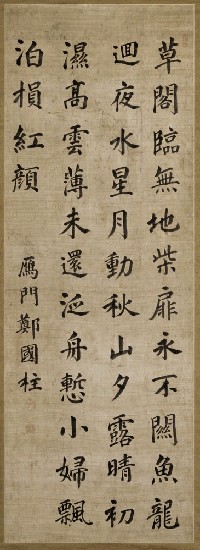 草閣臨無地柴扉永不關魚龍
迴夜水星月動秋山夕露晴初
濕高雲薄未還泛舟慙小婦飄
泊損紅顏
鴈門鄭國柱